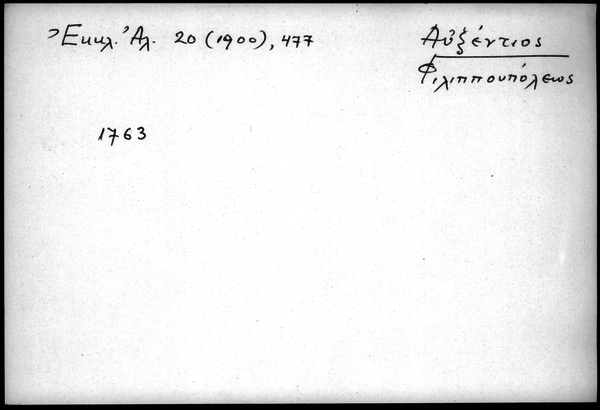 Ἐκκλ. Ἀλ. 20 (1900), 477
Αὐξέντιος
Φιλιππουπόλεως
1763